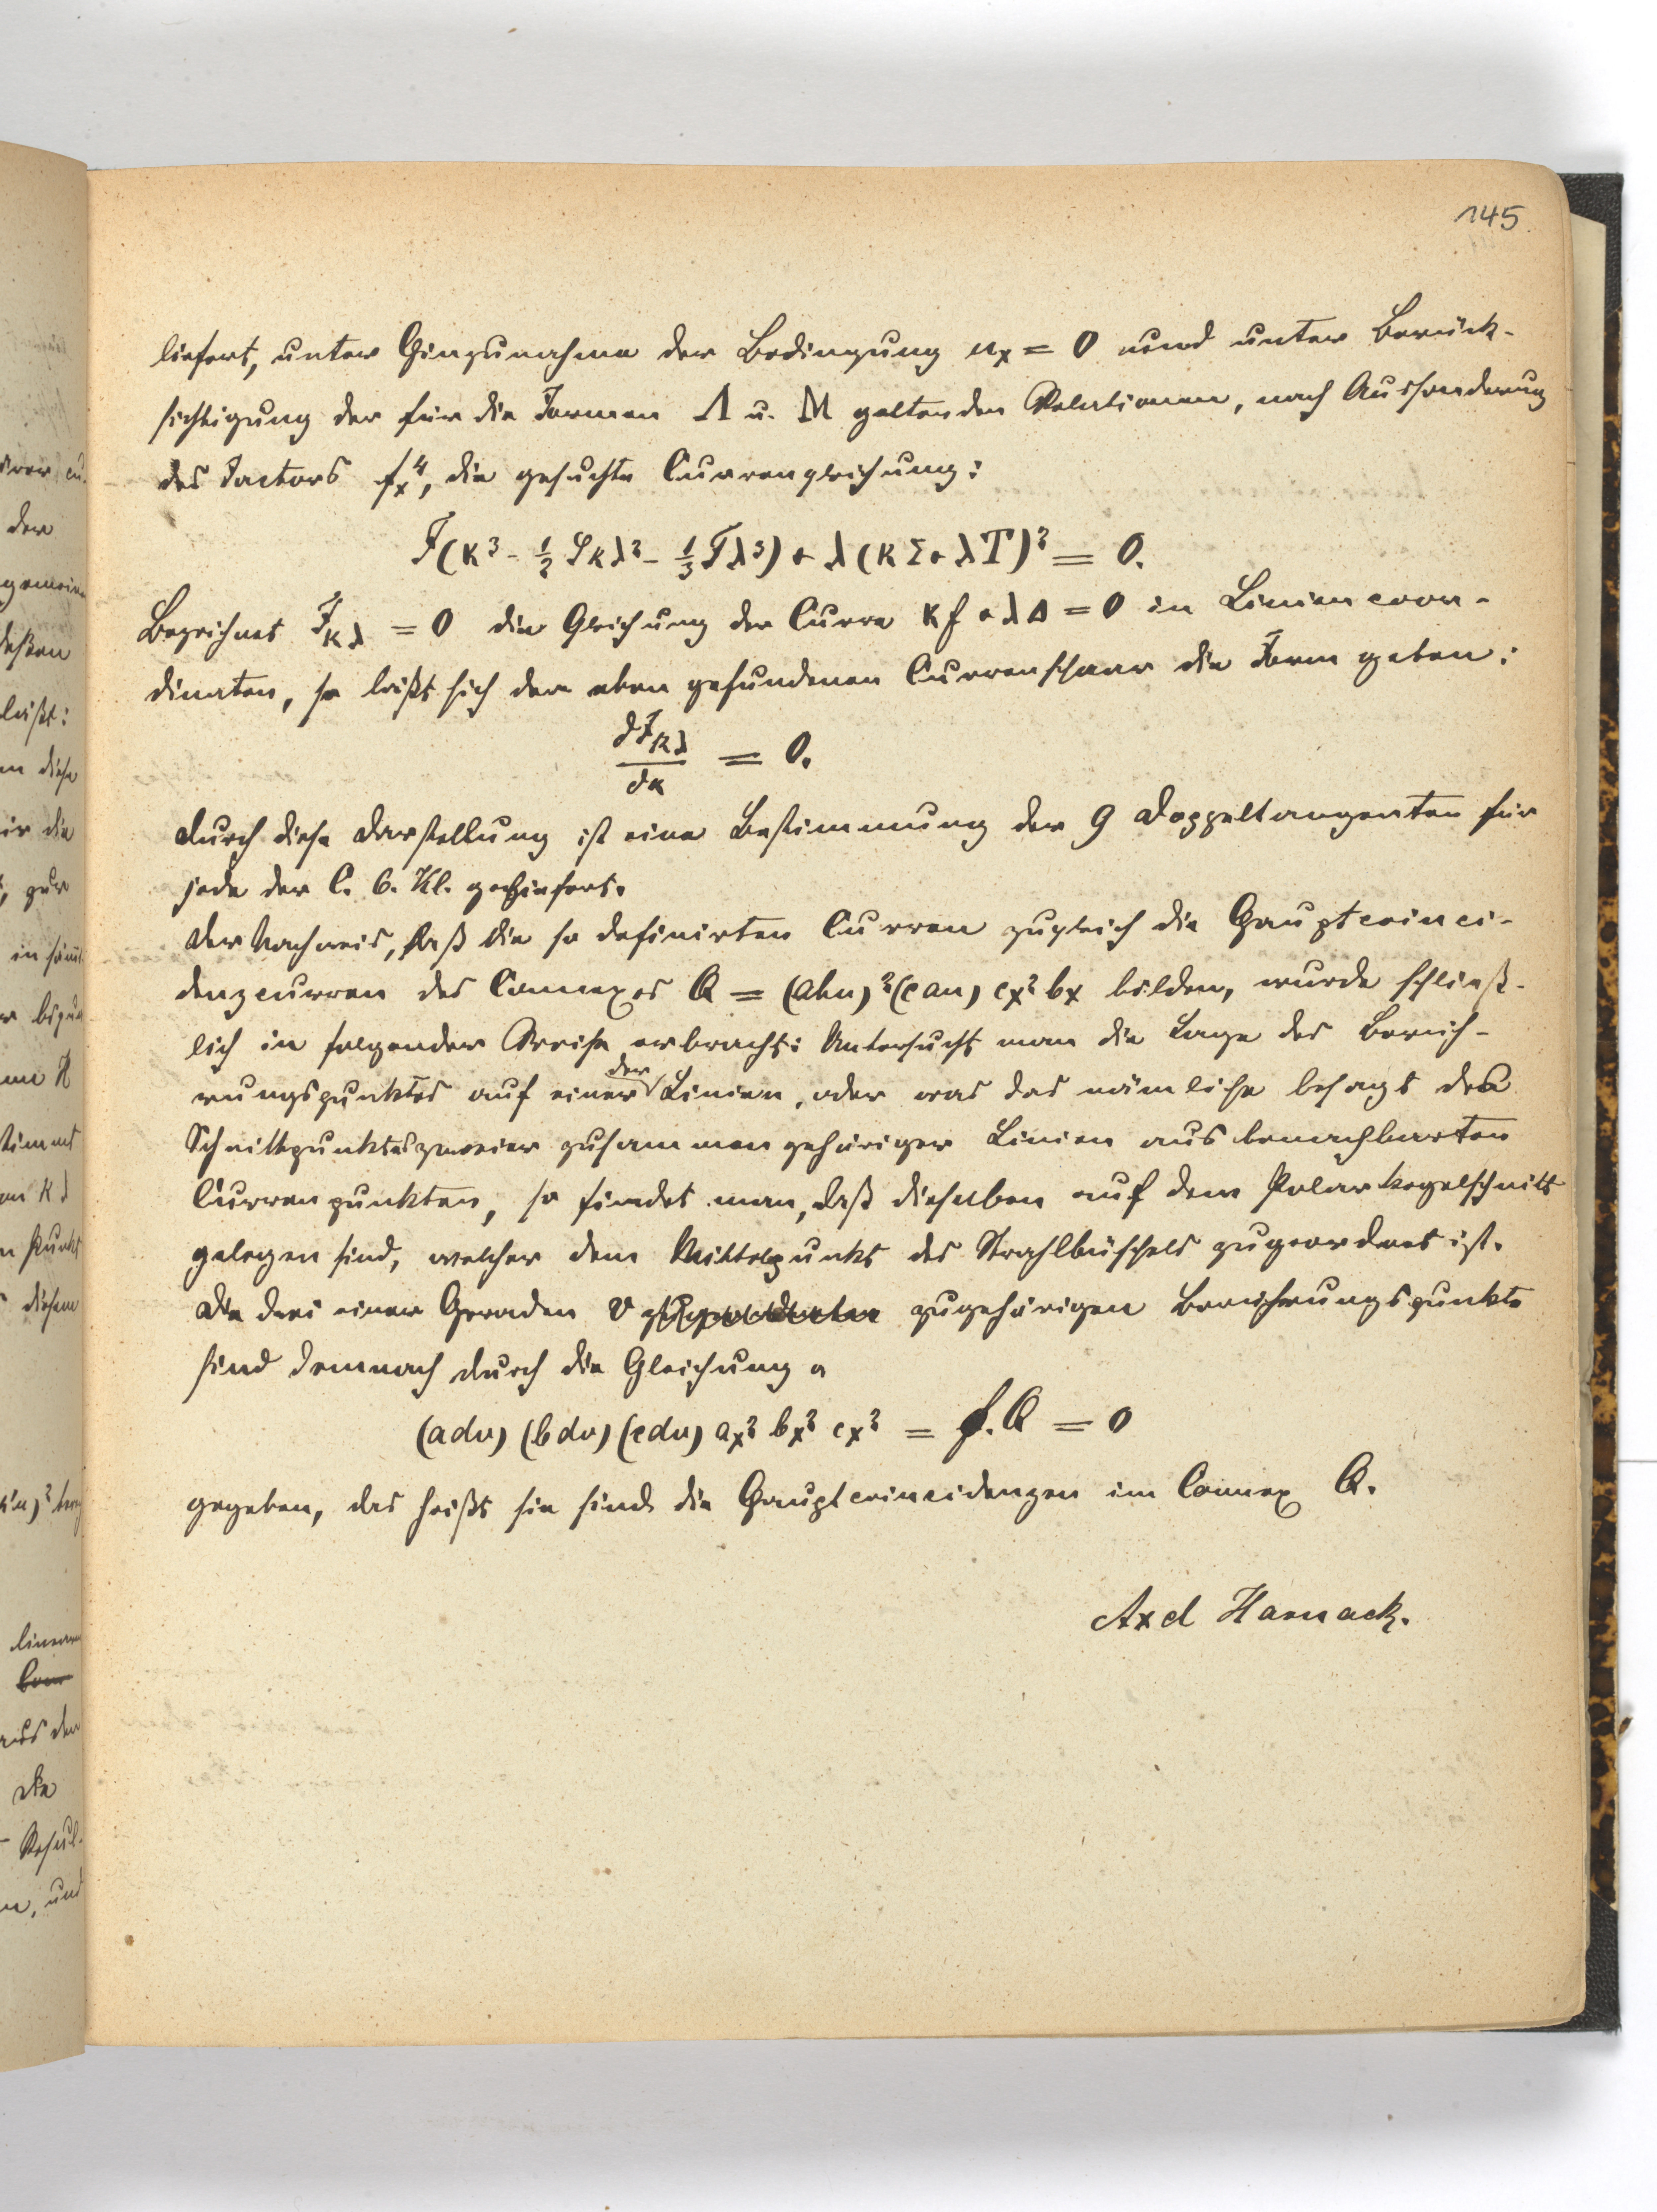 145
liefert, unter Hinzunahme der Bedingung uₓ = 0 und unter Berück-
sichtigung der für die Formen Λ u. M geltenden Relationen, nach Aussonderung
des Factors fₓ⁴, die gesuchte Curvengleichung:
F(κ³ - ½ Sκλ² - ⅓ Tλ³) + λ(κΣ + λT)² = 0.
Bezeichnet F_κλ = 0 die Gleichung der Curve κf + λΔ = 0 in Liniencoor-
dinaten, so läßt sich der eben gefundenen Curvenschaar die Form geben:
dF_κλ/dκ = 0.
Durch diese Darstellung ist eine Bestimmung der 9 Doppeltangenten für
jede der C. 6. Kl. geliefert.
Der Nachweis, daß die so definirten Curven zugleich die Hauptcoinci-
denzcurven des Connexes Q = (abu)²(cau) cₓ² bₓ bilden, wurde schließ-
lich in folgender Weise erbracht: Untersucht man die Lage des Berüh-
rungspunktes auf einer der Linien, oder was das nämliche besagt des
Schnittpunktes zweier zusammengehöriger Linien aus benachbarten
Curvenpunkten, so findet man, daß dieselben auf dem Polarkegelschnitt
gelegen sind, welcher dem Mittelpunkt des Strahlbüschels zugeordnet ist.
Die drei einer Geraden v zugehörigen Berührungspunkte
sind demnach durch die Gleichung
(adv) (bdv) (cdv) aₓ² bₓ² cₓ² = f.Q = 0
gegeben, das heißt sie sind die Hauptcoincidenzen im Connex Q.
Axel Harnack.